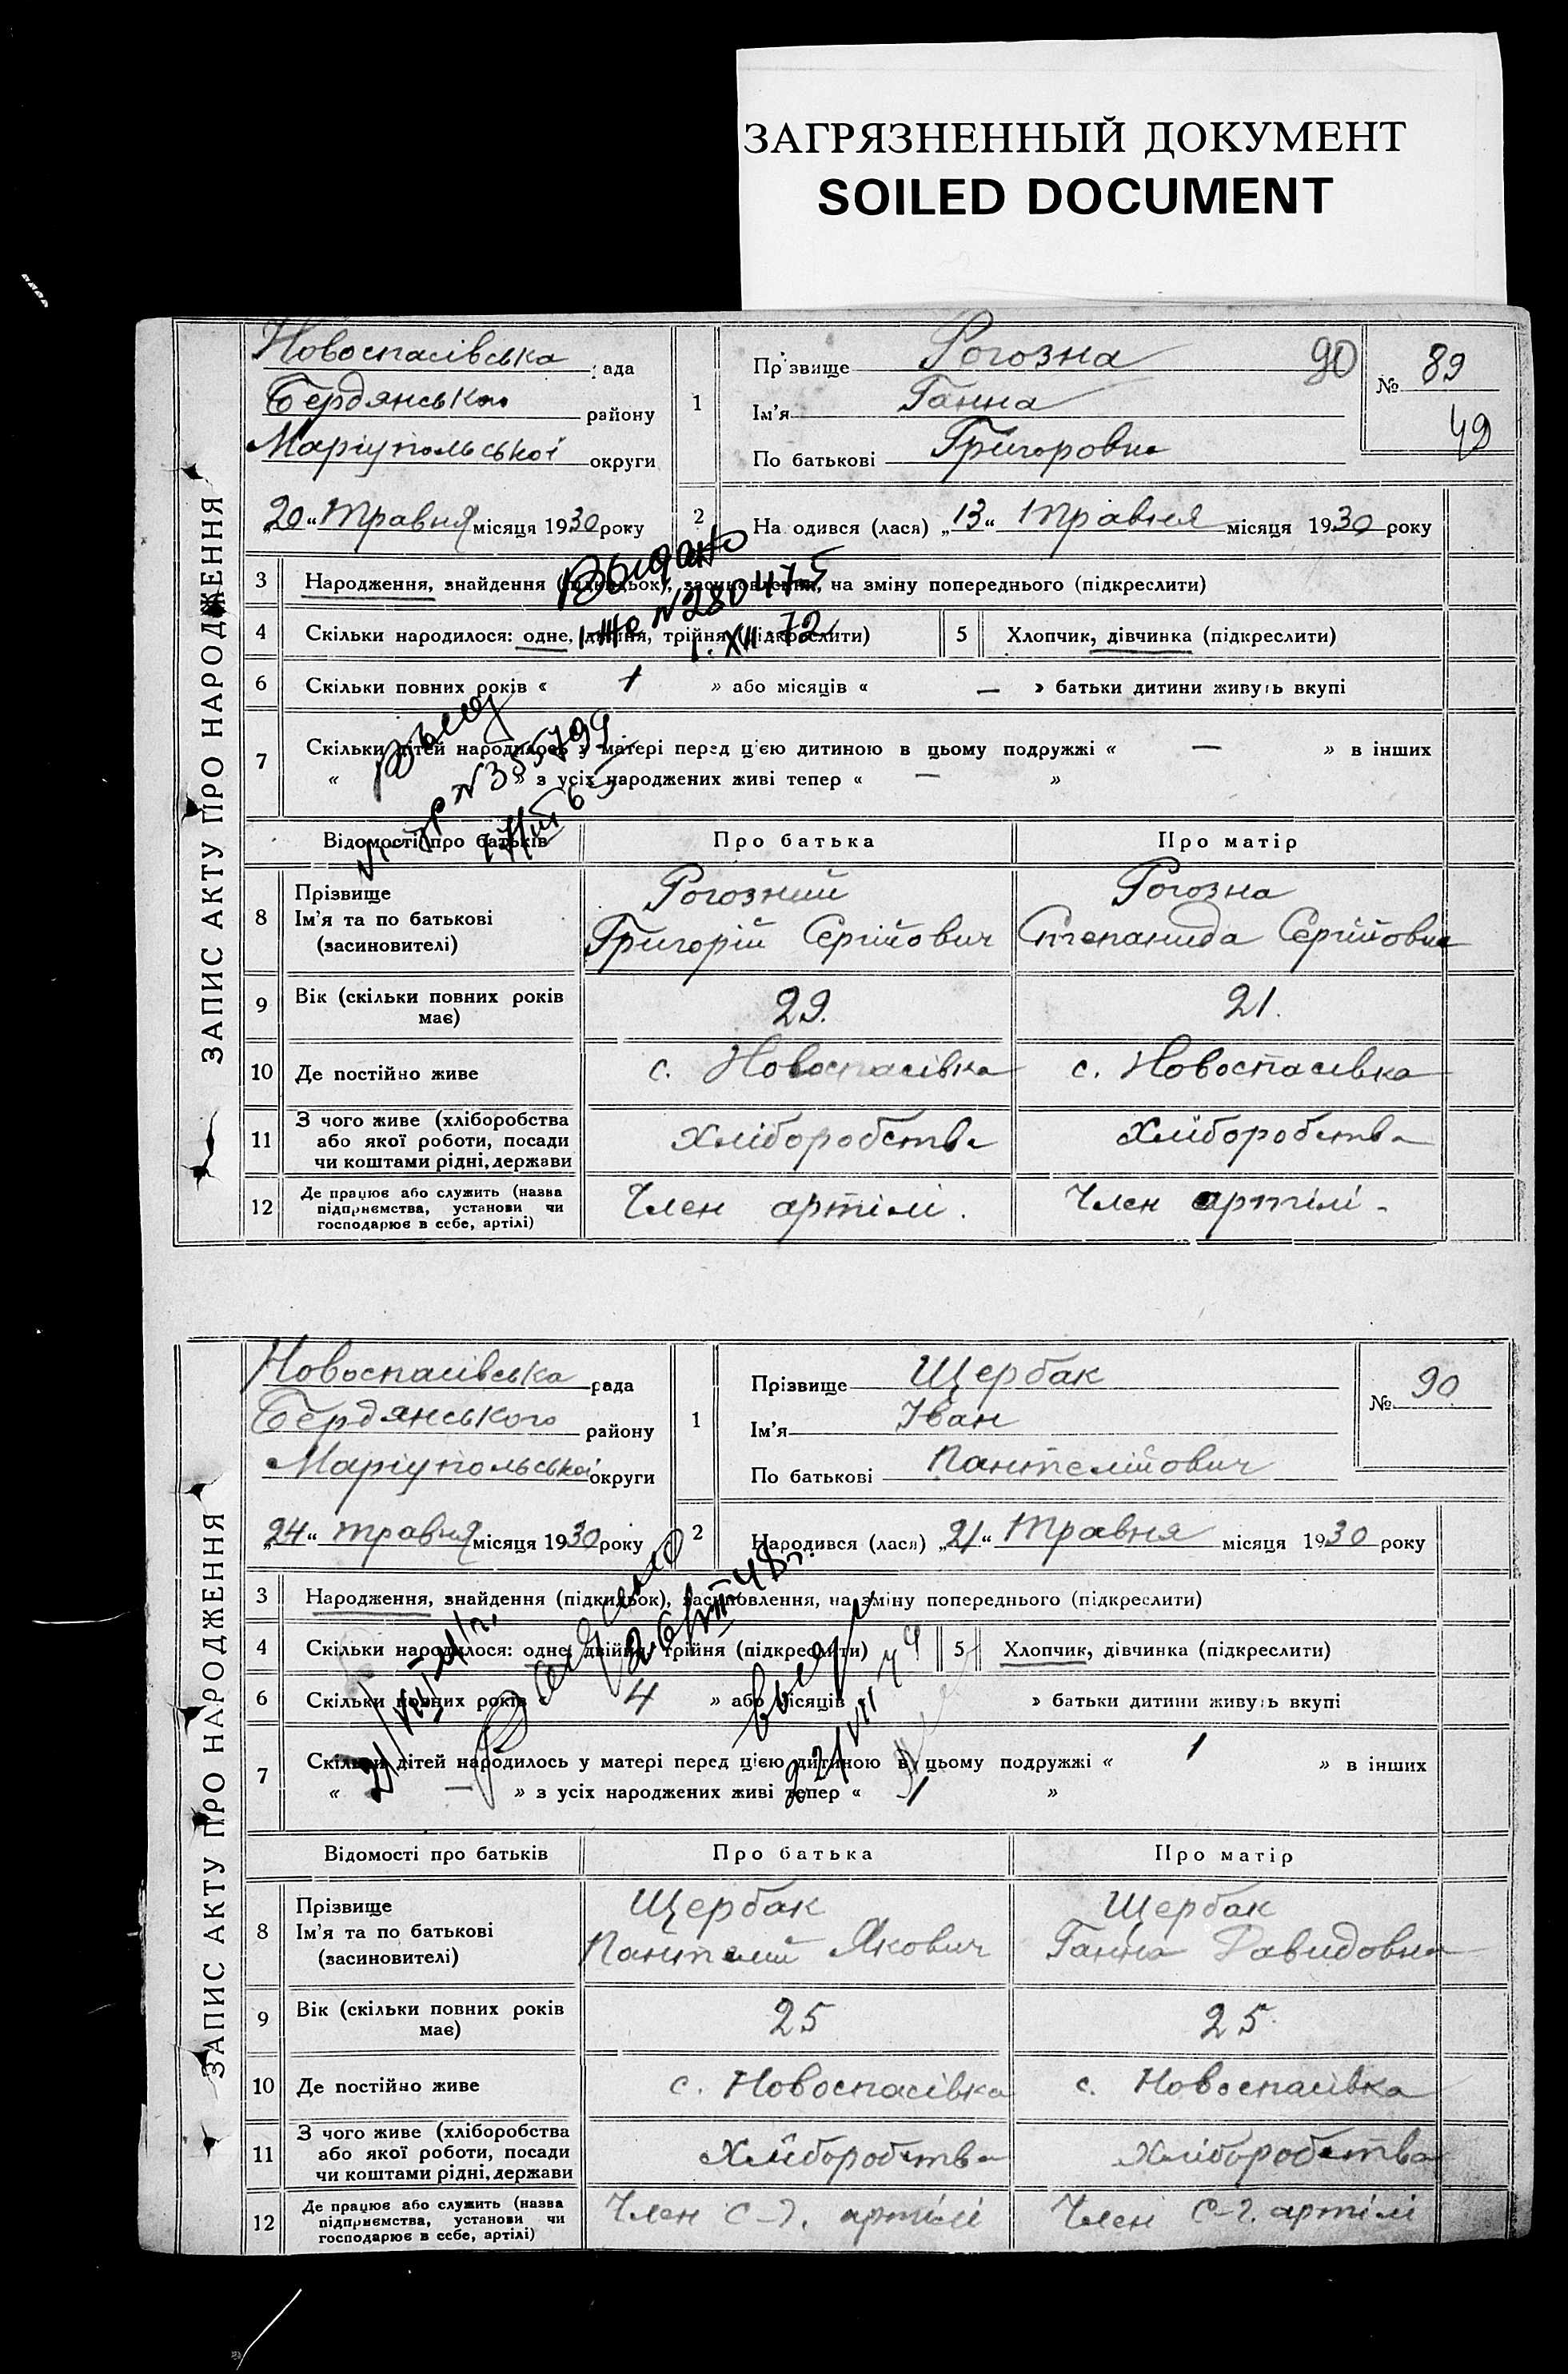 ЗАГРЯЗНЕННЫЙ ДОКУМЕНТ
SOILED DOCUMENT
ЗАПИС АКТУ ПРО НАРОДЖЕННЯ
Новоспасівська рада
Бердянського району
Маріупольської округи
„20“ Травня місяця 1930 року
1
Прізвище Рогозна
90
Ім’я Ганна
По батькові Григоровна
№ 89
49
2 На одився (лася) „13“ Травня місяця 1930 року
3 Народження, знайдення (підкидьок), засиновлення, на зміну попереднього (підкреслити)
Выдано
№ 280475
1. XII 72
4 Скільки народилося: одне, двійня, трійня (підкреслити)
5 Хлопчик, дівчинка (підкреслити)
6 Скільки повних років « 1 » або місяців « — » батьки дитини живуть вкупі
7 Скільки дітей народилось у матері перед цією дитиною в цьому подружжі « — » в інших
« » з усіх народжених живі тепер « — »
Выд
Відомості про батьків Про батька Про матір
8 Прізвище
Ім’я та по батькові
(засиновителі)
Рогозний
Григорій Сергійович
Рогозна
Степанида Сергійовна
9 Вік (скільки повних років має) 29. 21.
10 Де постійно живе с. Новоспасівка с. Новоспасівка
11 З чого живе (хліборобства
або якої роботи, посади
чи коштами рідні, держави
Хліборобства Хліборобства
12 Де працює або служить (назва
підприємства, установи чи
господарює в себе, артілі)
Член артілі. Член артілі -
ЗАПИС АКТУ ПРО НАРОДЖЕННЯ
Новоспасівська рада
Бердянського району
Маріупольської округи
„24“ травня місяця 1930 року
1
Прізвище Щербак
Ім’я Іван
По батькові Пантелійович
№ 90
2 Народився (лася) „21“ Травня місяця 1930 року
3 Народження, знайдення (підкидьок), засиновлення, на зміну попереднього (підкреслити)
4 Скільки народилося: одне, двійня, трійня (підкреслити)
5 Хлопчик, дівчинка (підкреслити)
6 Скільки повних років « 4 » або місяців » батьки дитини живуть вкупі
7 Скільки дітей народилось у матері перед цією дитиною в цьому подружжі « 1 » в інших
« — » з усіх народжених живі тепер « 1 »
Відомості про батьків Про батька Про матір
8 Прізвище
Ім’я та по батькові
(засиновителі)
Щербак
Пантелій Якович
Щербак
Ганна Давидовна
9 Вік (скільки повних років має) 25 25.
10 Де постійно живе с. Новоспасівка с. Новоспасівка
11 З чого живе (хліборобства
або якої роботи, посади
чи коштами рідні, держави
Хліборобства Хліборобства
12 Де працює або служить (назва
підприємства, установи чи
господарює в себе, артілі)
Член с-г. артілі Член с-г. артілі